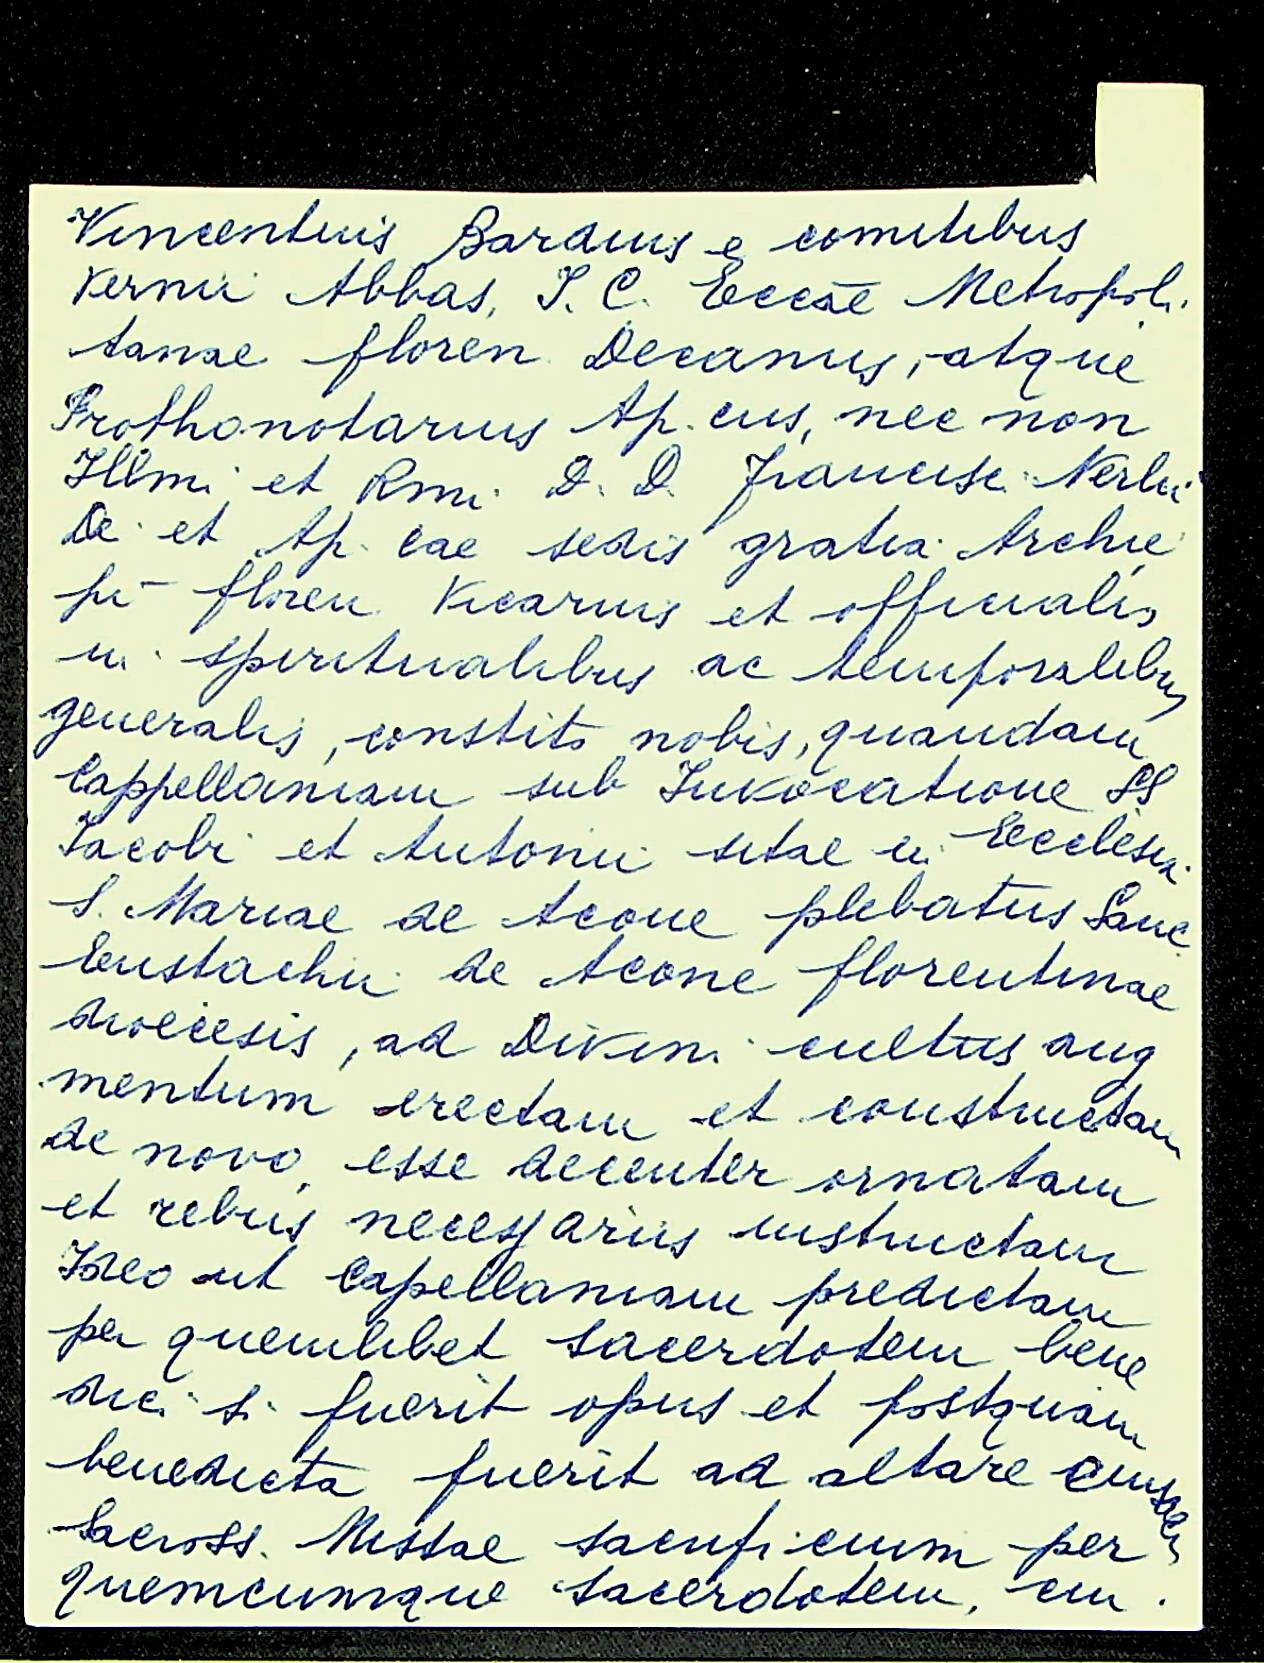 Vincentius Bardius e comitibus
Vernii Abbas, I. C. Eccae Metropoli
tanae floren Decanus, atque
Prothonotarius Ap.cus, nec non
Illmi et Rmi D. D. Francisci Nerlii
Dei et Ap.cae sedis gratia Archie
pi floren Vicarius et officialis
in spiritualibus ac temporalibus
generalis, constito nobis, quandam
Cappellaniam sub Invocatione SS
Iacobi et Antonii sitae in Ecclesia
S. Mariae de Acone plebatus Sanc
Eustachii de Acone florentinae
dioecesis, ad Divini cultus aug
mentum erectam et constructam
de novo, esse decenter ornatam
et rebus necessariis instructam
Ideo ut Capellaniam predictam
per quemlibet sacerdotem bene
dici si fuerit opus et postquam
benedicta fuerit ad altare eiusdem
Sacross. Missae sacrificium per
quemcumque sacerdotem, cui